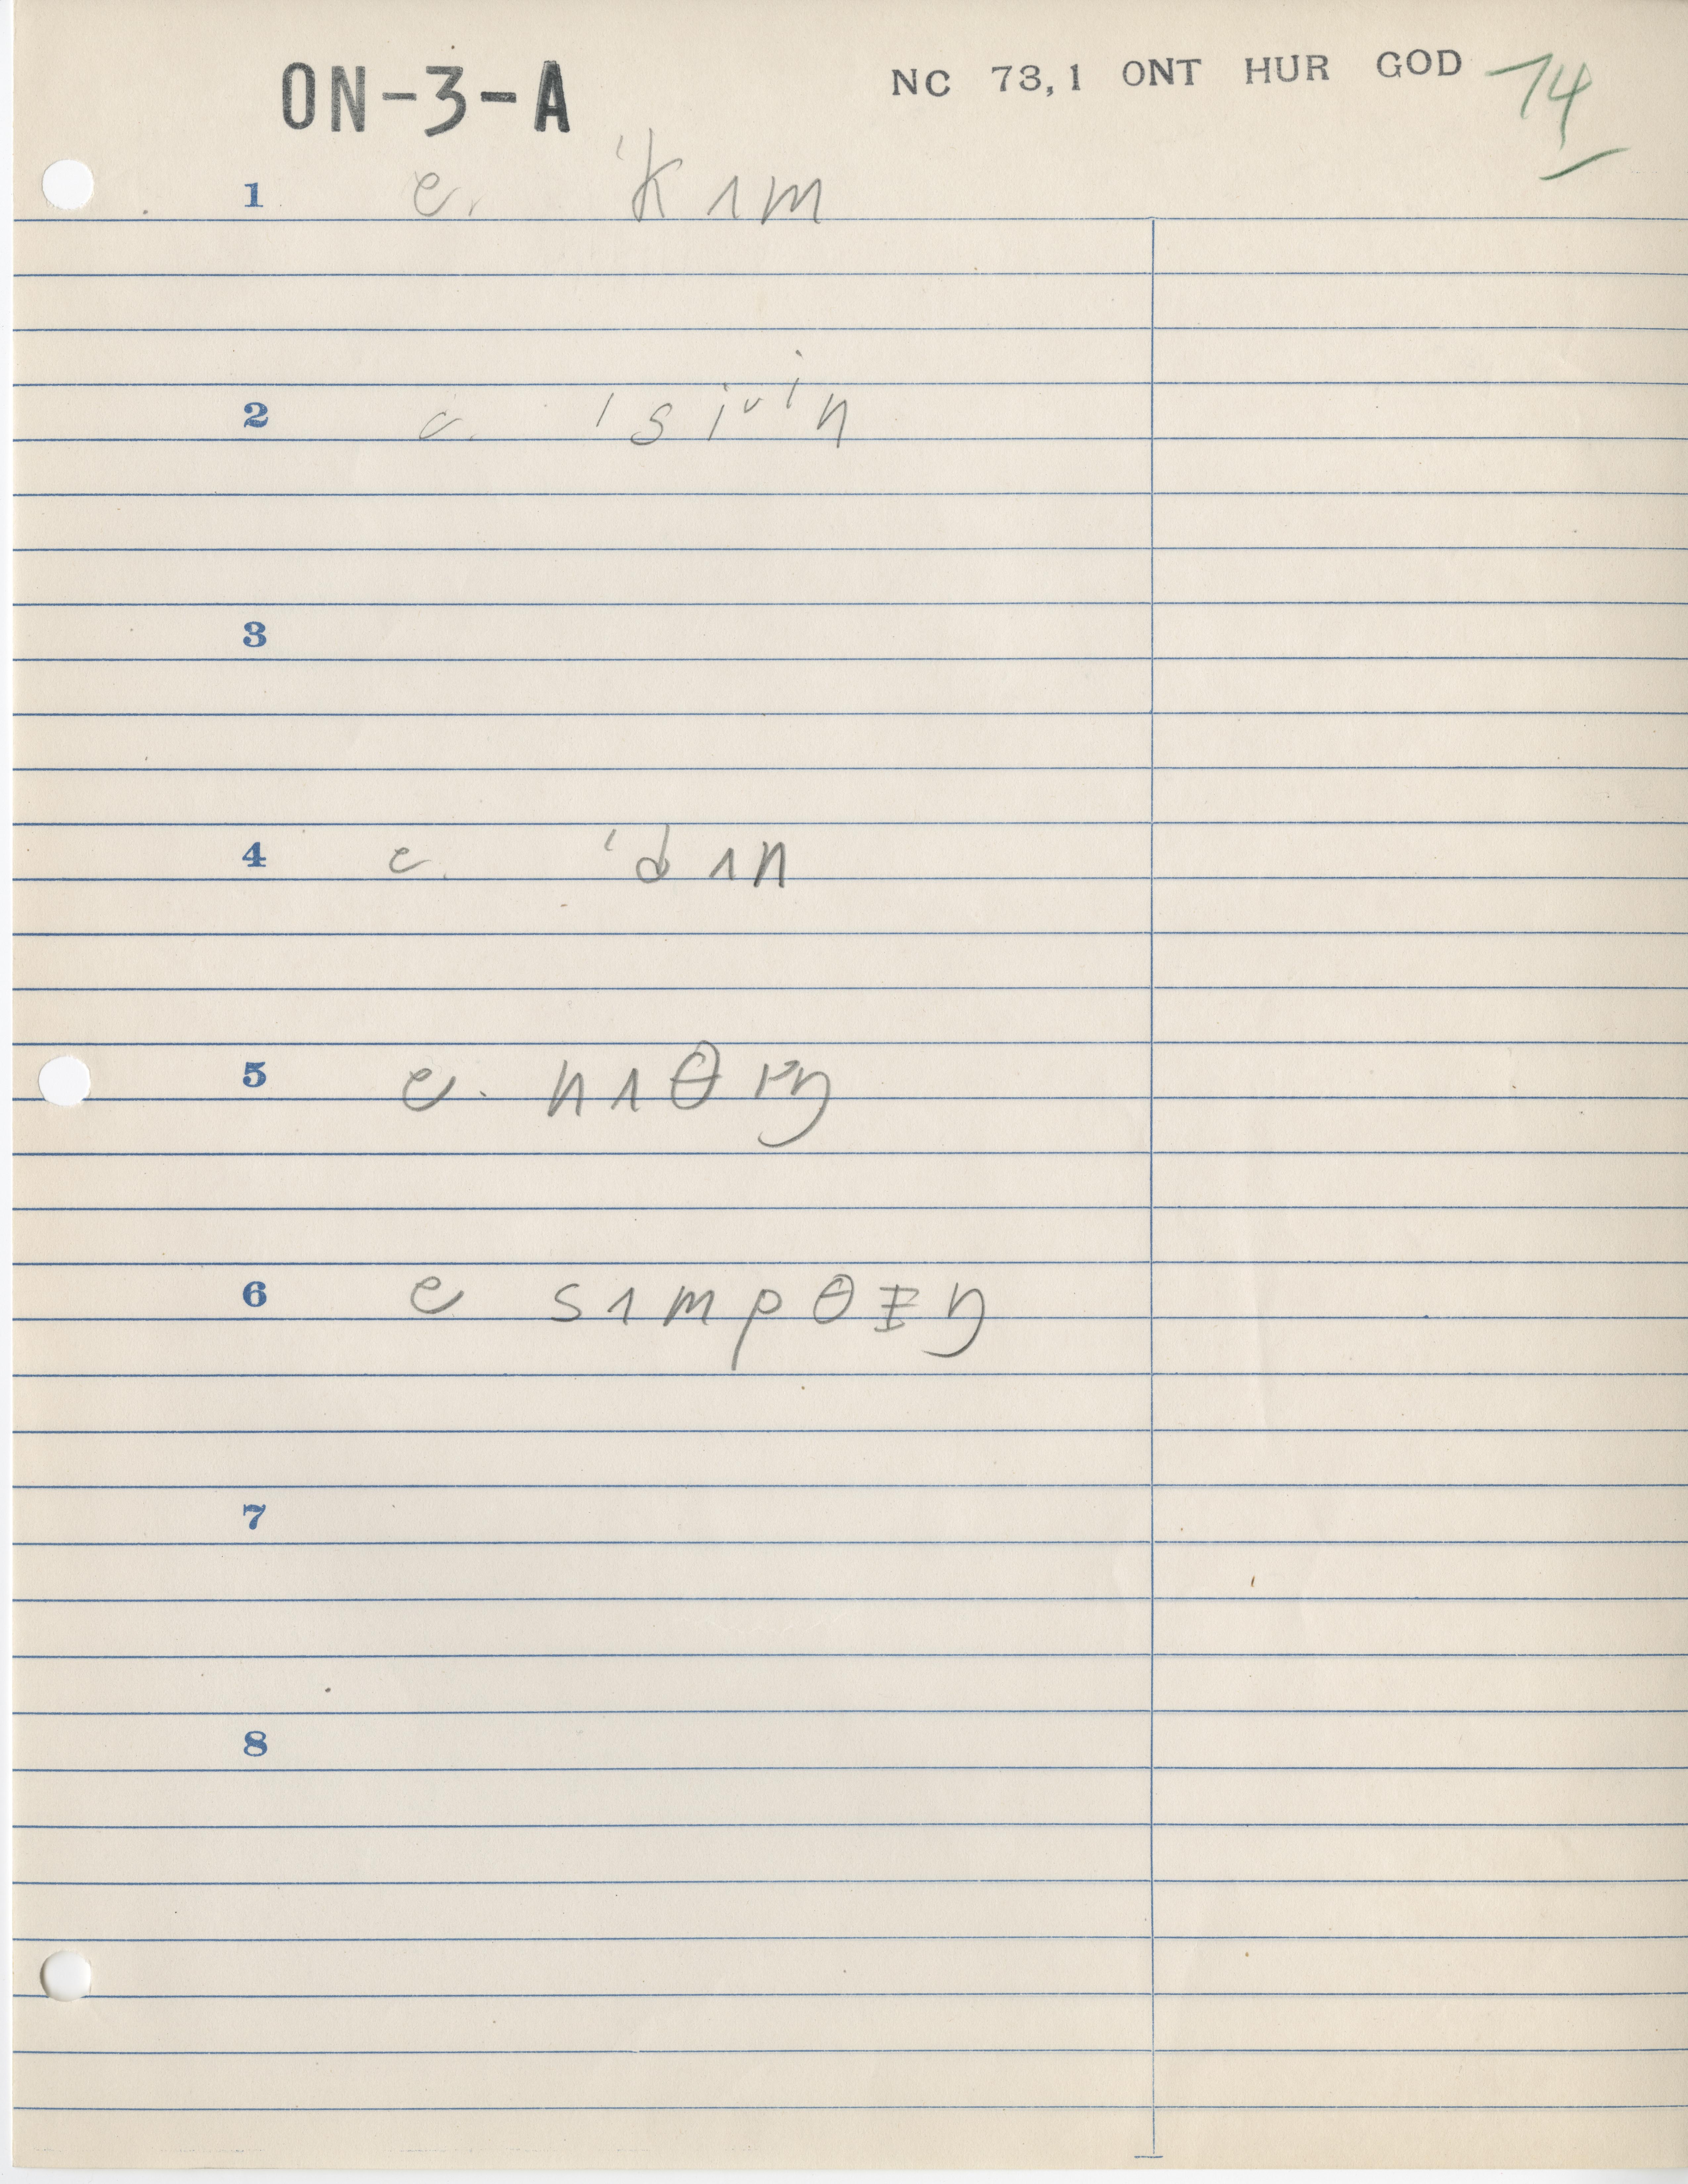 ON-3-A NC 73,1 ONT HUR GOD 74
1 c. ˈkʌm
2 c. ˈsiᵛin
3
4 c. ˈdʌn
5 c. nʌθɪŋ
6 c sʌmpθɪŋ
7
8